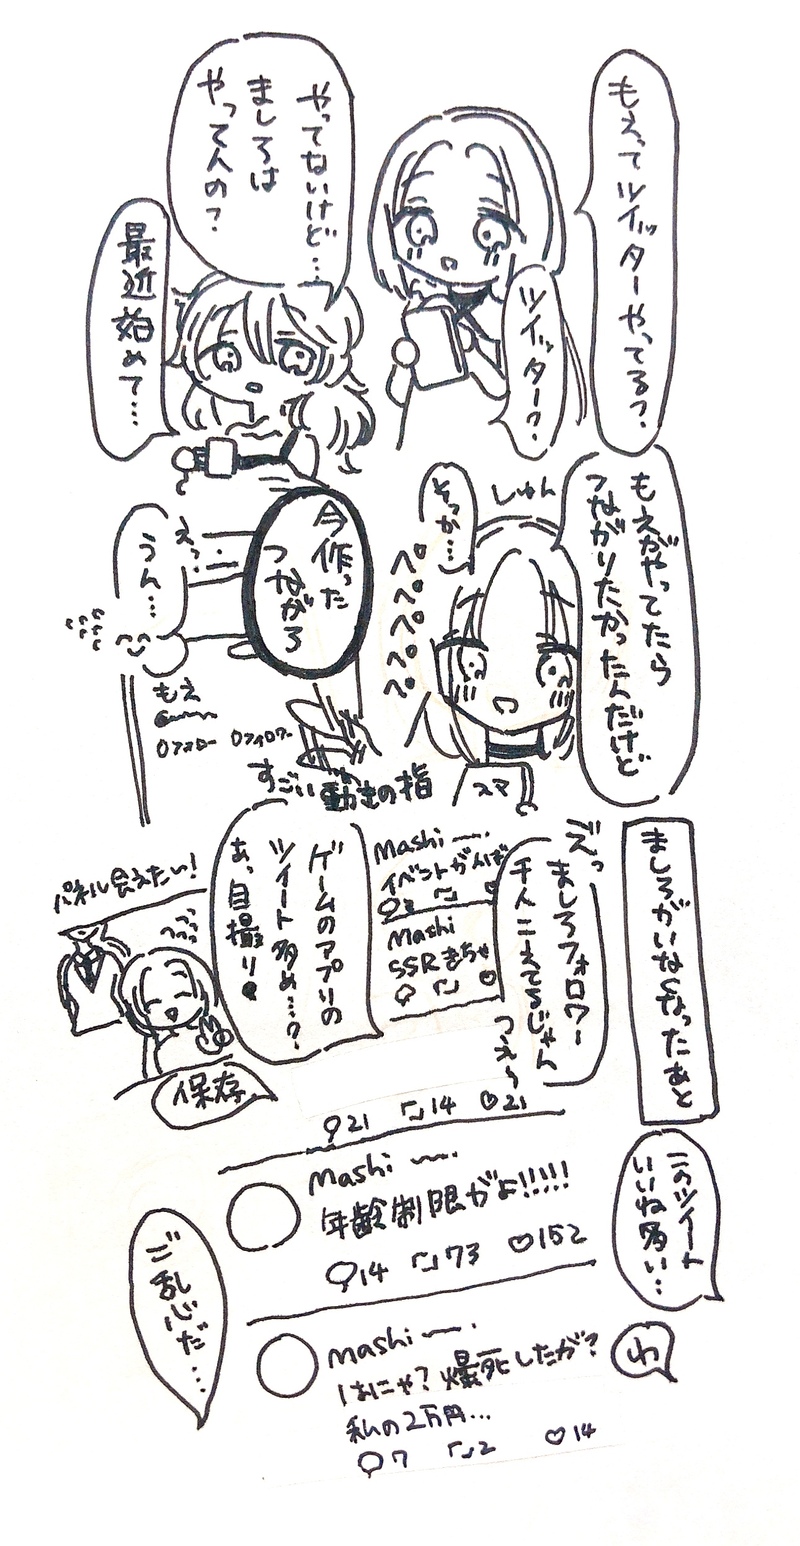 もえってツイッターやってる?
ツイッター?
やってないけど…
ましろは
やってんの?
最近始めて…
もえがやってたら
つながりたかったんだけど
しゅん
そっか…
ペペペペペ
スマ
今作った
つながろ
えっ…
うん…
もえ
0フォロー 0フォロワー
すごい動きの指
ましろがいなくなったあと
えっ
ましろフォロワー
千人こえてるじゃん
つえ~
Mashi
イベントがんば
Mashi
SSRきちゃ
ゲームのアプリの
ツイート多め…?
あっ自撮り
パネル会えたい!
保存
21 14 21
このツイート
いいね多い…
Mashi
年齢制限がよ!!!!!
14 73 152
わ
Mashi
はにゃ?爆死したが?
私の2万円…
7 2 14
ご乱心だ…